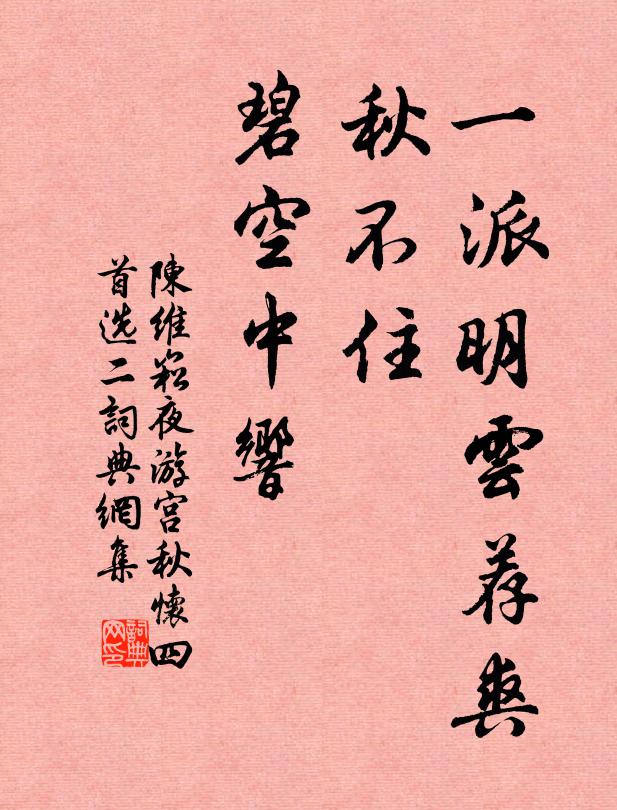 一派明雲荐爽
秋不住
碧空中響
陳維崧夜游宫秋懷四
首选二詞典網集
詞典网印